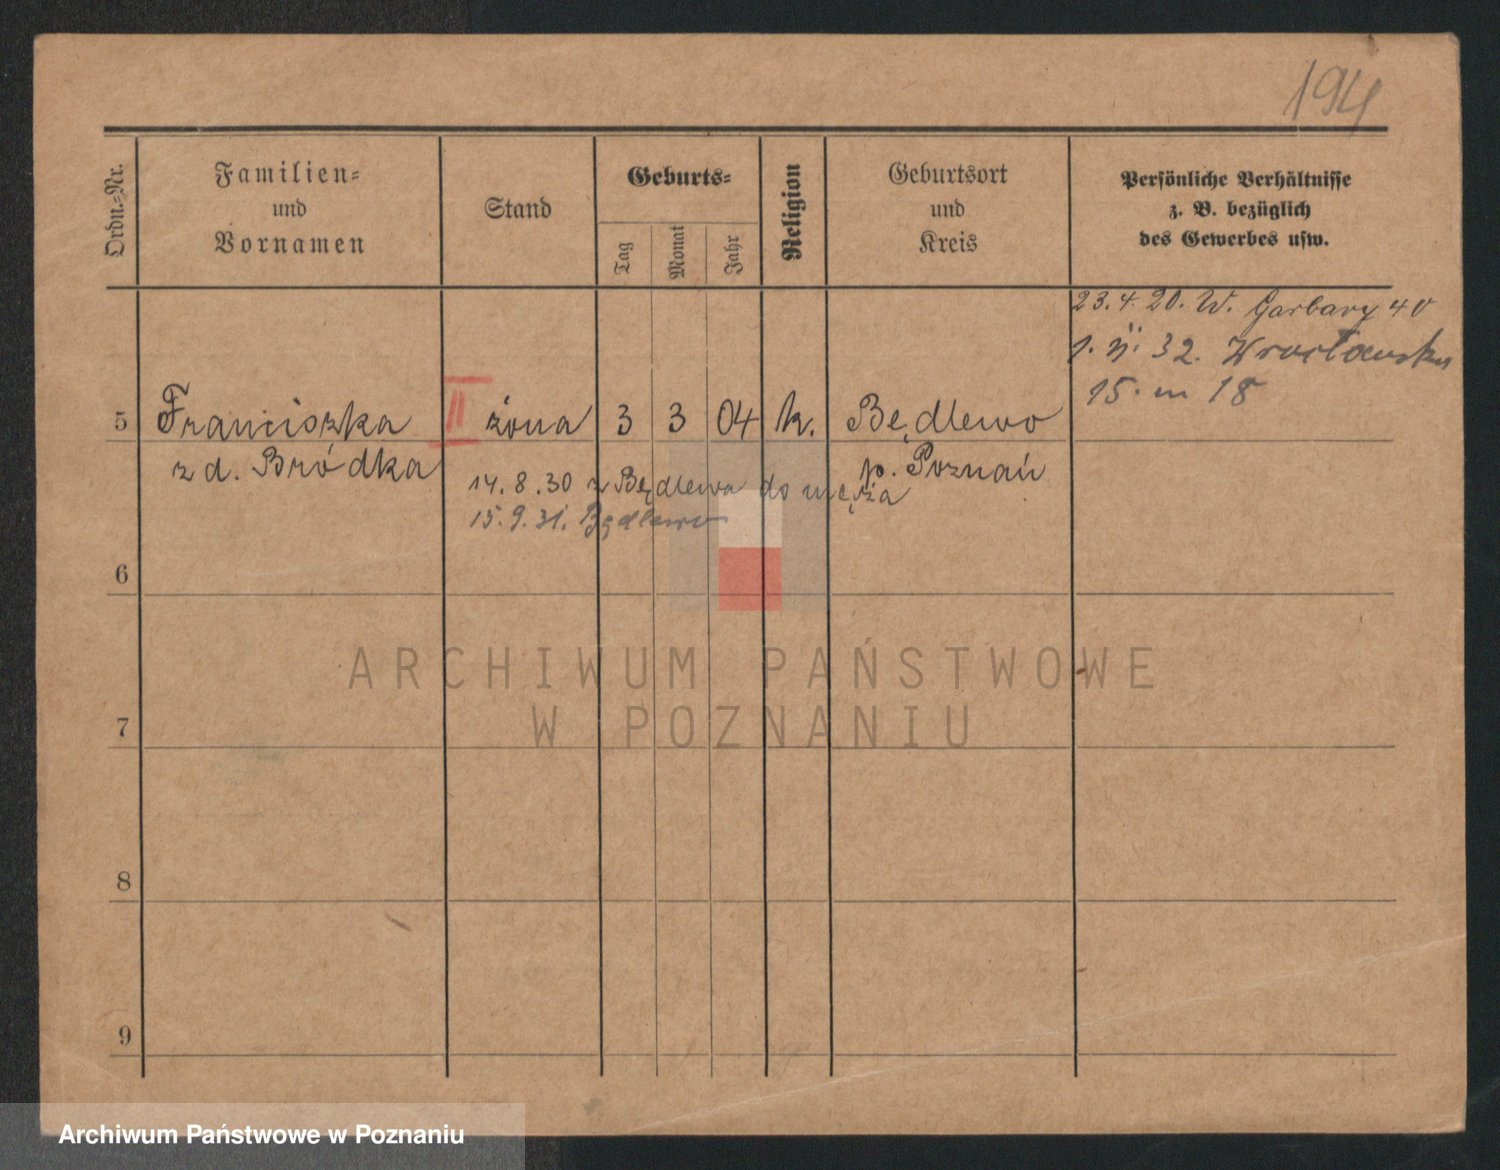 194
Ordn.-Nr.
Familien-
und
Vornamen
Stand
Geburts-
Tag
Monat
Jahr
Religion
Geburtsort
und
Kreis
Persönliche Verhältnisse
z. B. bezüglich
des Gewerbes usw.
23.4.20. W. Garbary 40
32. Wrocławska
15 m 18
5 Franciszka II żona 3 3 04 k. Będlewo
z d. Bródka p. Poznań
14.8.30 z Będlewa do męża
15.9.31. Będlewo
6
7
8
9
ARCHIWUM PAŃSTWOWE
W POZNANIU
Archiwum Państwowe w Poznaniu